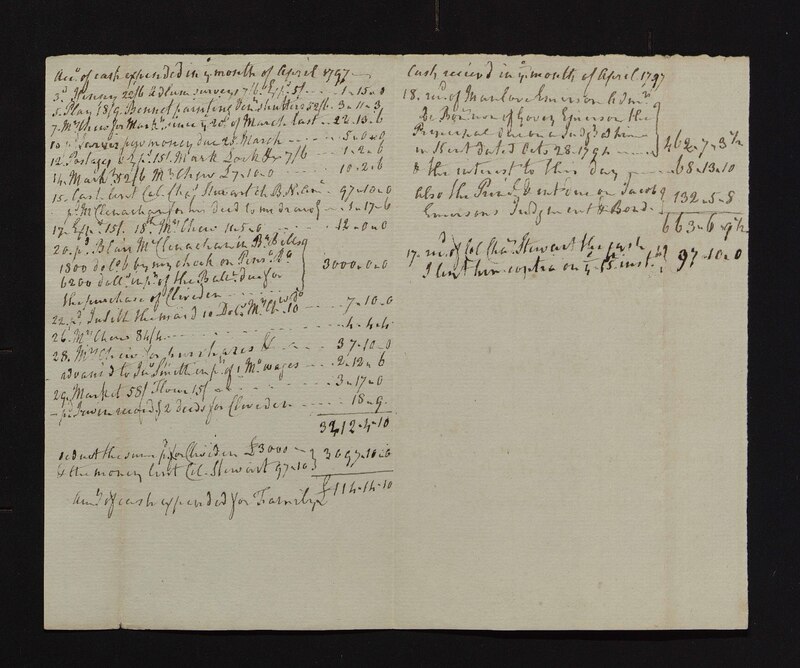 Acct. of cash expended in ye month of April 1797
3d. 22/6 2 surveys 7/6 5/ 1-15-0
5. Play 18/9 Bennet painting shutters 52/6. 3-11-3
7. Mrs Chew for Mark. since ye 20th of March last 22-13-6
10 money due 25 March 5-0-0
12. Postages 15/. Mark 7/6 1-2-6
14. Mark. 52/6 Mrs Chew £7-10-0 10-2-6
15. Cash lent Col. Chas. Stewart 97-10-0
pd. McClenachan for deed to me 1-17-6
17. 15/. 18. Mrs Chew 11-5-0 12-0-0
20. pd. Blair McClenachan in
1800 dolls by my check on
6200 dolls in pt. of the Balce. due for 3000-0-0
the purchase of Cliveden
22. pd. Judith the maid 10 Dols. Mrs Chew 10 7-10-0
26. Mrs Chew 84/4 4-4-4
28. Mrs Chew for purchases &c 37-10-0
advanc'd to Jno. Smith in pt. of 1 Mo. wages 2-12-6
29. Market 58/. Flour 15/ 3-17-0
pd. Irwin record'g 2 deeds for Cliveden 18-9.
3212-4-10
deduct the sum pd. for Cliveden £3000
& the money lent Col. Stewart 97-10 3097-10-0
Amt. of cash expended for Family £114-14-10
Cash receivd in ye month of April 1797
18. recd. of Manlove Emerson Admr.
De Bonis non of Govey Emerson the
Principal due on a Judgt.
in Kent dated Oct. 28. 1794 462-7-3½
& the interest to this day 68-13-10
also the Prinl. & Int due on Jacob
Emersons Judgment & Bond 132-5-8
663-6-9½
17. recd. of Col Chas. Stewart the cash
I lent him contra on ye 15 inst. 97-10-0